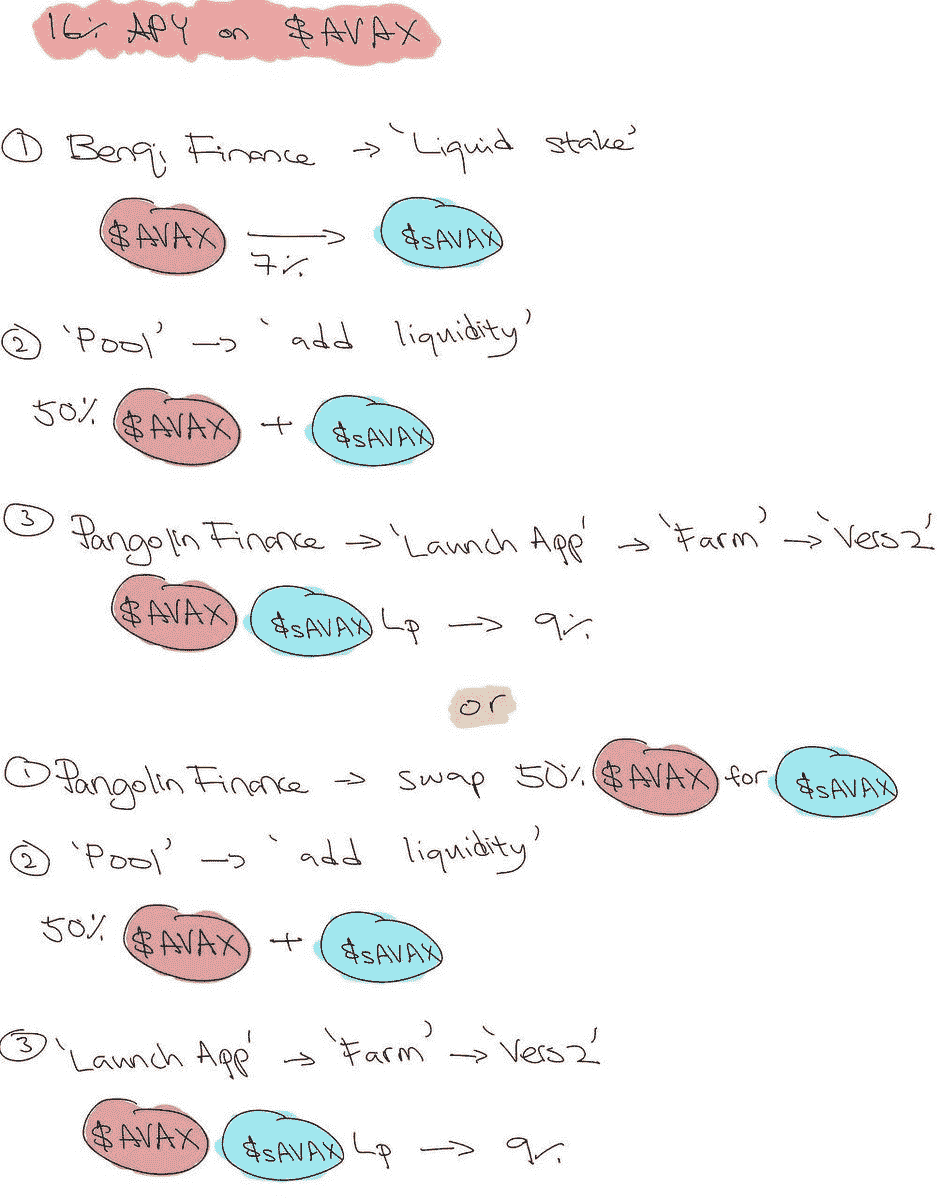 16% APY on $AVAX
① Benqi Finance → 'Liquid stake'
$AVAX → $sAVAX
7%
② 'Pool' → 'add liquidity'
50% $AVAX + $sAVAX
③ Pangolin Finance → 'Launch App' → 'Farm' → 'Vers 2'
$AVAX $sAVAX Lp → 9%
or
① Pangolin Finance → swap 50% $AVAX for $sAVAX
② 'Pool' → 'add liquidity'
50% $AVAX + $sAVAX
③ 'Launch App' → 'Farm' → 'Vers 2'
$AVAX $sAVAX Lp → 9%